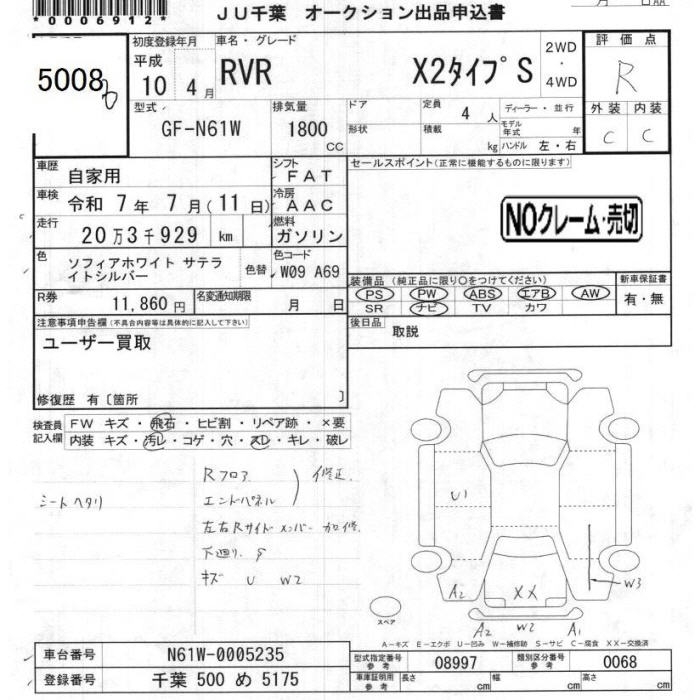 *0006912*
JU千葉 オークション出品申込書
5008
初度登録年月
平成
10 年 4 月
車名・グレード
RVR X2タイプS
2WD
・
4WD
評価点
R
型式
GF-N61W
排気量
1800
CC
ドア
形状
定員
4 人
積載
kg
ディーラー・並行
モデル年式 年
ハンドル 左・右
外装 内装
C C
車歴
自家用
シフト
FAT
セールスポイント(正常に機能するものに限ります)
車検
令和 7 年 7 月(11 日)
冷房
AAC
NOクレーム・売切
走行
20 万 3 千 929 km
燃料
ガソリン
色
ソフィアホワイト サテラ
イトシルバー
色替
色コード
W09 A69
装備品(純正品に限り○をつけてください)
PS PW ABS エアB AW
SR ナビ TV カワ
新車保証書
有・無
R券
11,860 円
名変通知期限
月 日
後日品
取説
注意事項申告欄(不具合内容等は具体的に記入して下さい)
ユーザー買取
修復歴 有〔箇所 〕
検査員
記入欄
FW キズ・飛石・ヒビ割・リペア跡・×要
内装 キズ・汚レ・コゲ・穴・スレ・キレ・破レ
シートヘタリ
Rフロア
エンドパネル
修正
左右Rサイドメンバー 加修
下廻り S
キズ U W2
U1
W3
A2
XX
A2 W2 A1
スペア
A-キズ E-エクボ U-凹み W-補修跡 S-サビ C-腐食 XX-交換済
車台番号
N61W-0005235
型式指定番号
参考
08997
類別区分番号
参考
0068
登録番号
千葉 500 め 5175
車庫証明用
参考
長さ cm
幅 cm
高さ cm